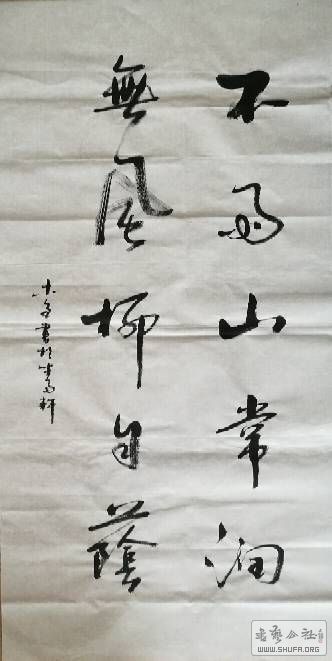 不雨山常润
無風柳自蔭
書於
書藝公社
WWW.SHUFA.ORG